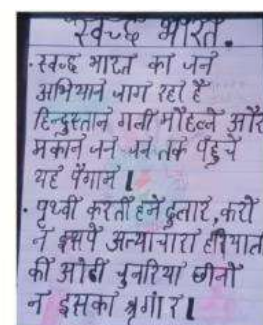 स्वच्छ भारत.
• स्वच्छ भारत का जन
अभियान जाग रहा है
हिन्दुस्तान गली मोहल्ले और
मकान जन जन तक पहुचे
यह पैगाम।
• पृथ्वी करती हमे दुलार, करो
न इसपे अत्याचारा हरियाली
की ओढी चुनरिया छीनो
न इसका श्रृगार।